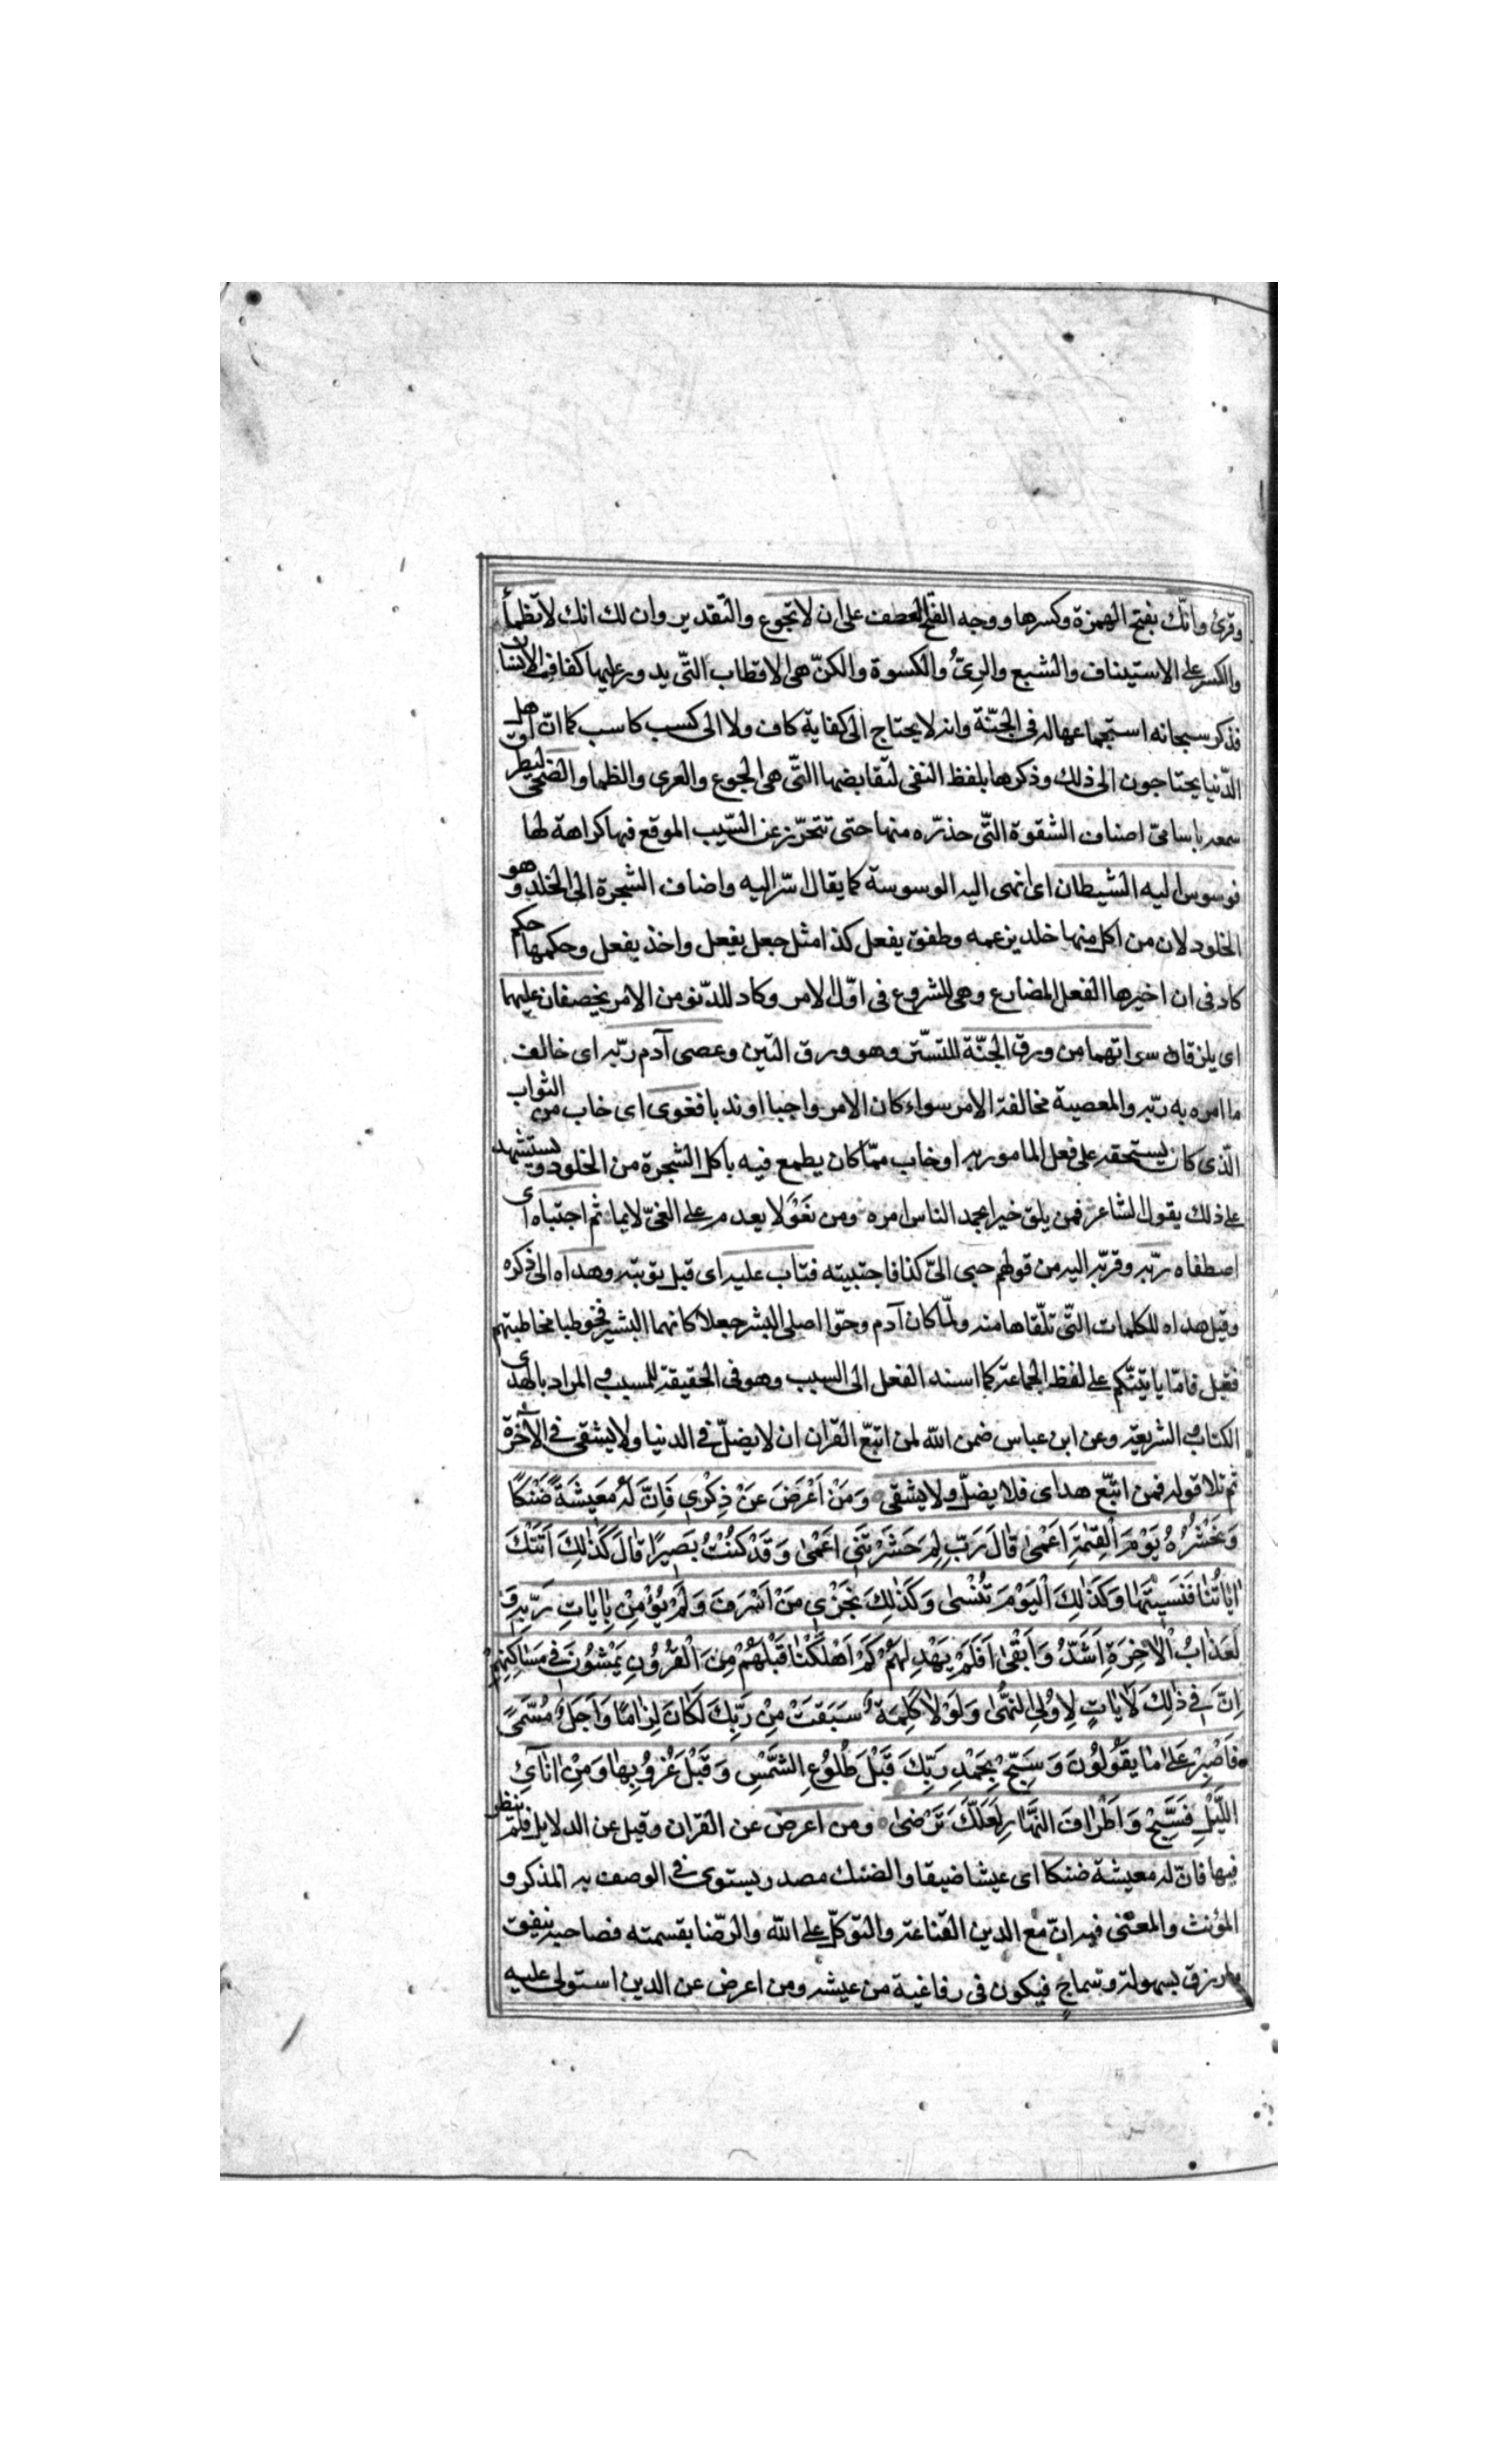 وقرئ وانّك بفتح الهمزة وكسرها ووجه الفتح العطف على ان لا تجوع والتقدير وان لك انك لا تظمأ
والكسر على الاستيناف والشبع والرىّ والكسوة والكنّ هى الاقطاب التّى يدور عليها كفاف الانسان
فذكر سبحانه استجماعها له فى الجنّة وانه لا يحتاج الى كفاية كاف ولا الى كسب كاسب كما انّ اهل
الدّنيا يحتاجون الى ذلك وذكرها بلفظ النفى لنقايضها التّى هى الجوع والعرى والظما والضحى ليطرق
سمعه باسامى اصناف الشقوة التّى حذّره منها حتى تتحرّز عن السّبب الموقع فيها كراهة لها
فوسوس اليه الشيطان اى انهى اليه الوسوسة كما يقال اسرّ اليه واضاف الشجرة الى الخلد وهو
الخلود لان من اكل منها خلد بزعمه وطفق يفعل كذا مثل جعل يفعل واخذ يفعل وحكمها حكم
كاد فى ان اخبرها الفعل المضارع وهى للشروع فى اوّل الامر وكاد للدّنو من الامر يخصفان عليهما
اى يلزقان سواتهما من ورق الجنّة للتستّر وهو ورق التين وعصى آدم ربّه اى خالف
ما امره به ربّه والمعصية مخالفة الامر سواء كان الامر واجبا او ندبا فغوى اى خاب من الثواب
الّذى كان يستحقه على فعل المامور به او خاب ممّا كان يطمع فيه باكل الشجرة من الخلود ويستشهد
على ذلك بقول الشاعر فمن يلق خيرا يحمد الناس امره ومن يغو لا يعدم على الغىّ لايما ثم اجتباه اى
اصطفاه ربّه وقربّه اليه من قولهم جبى الىّ كذا فاجتبيته فتاب عليه اى قبل توبته وهداه الى ذكره
وقيل هداه للكلمات التّى تلقّاها منه ولمّا كان آدم وحوّا اصلى البشر جعلا كانهما البشر فخوطبا مخاطبتهم
فقيل فامّا ياتينّكم على لفظ الجماعة كما اسند الفعل الى السبب وهو فى الحقيقة للمسبب والمراد بالهدى
الكتاب والشريعة وعن ابن عباس ضمن الله لمن اتبّع القران ان لا يضلّ فى الدنيا ولا يشقى فى الآخرة
ثم تلا قوله فمن اتبّع هداى فلا يضلّ ولا يشقى وَمَنْ اَعْرَضَ عَنْ ذِكْرِى فَاِنَّ لَهُ مَعِيشَةً ضَنْكًا
وَنَحْشُرُهُ يَوْمَ الْقِيٰمَةِ اَعْمٰى قَالَ رَبِّ لِمَ حَشَرْتَنِى اَعْمٰى وَقَدْ كُنْتُ بَصِيرًا قَالَ كَذٰلِكَ اَتَتْكَ
اٰيَاتُنَا فَنَسِيتَهَا وَكَذٰلِكَ الْيَوْمَ تُنْسٰى وَكَذٰلِكَ نَجْزِى مَنْ اَسْرَفَ وَلَمْ يُؤْمِنْ بِاٰيَاتِ رَبِّهِ وَ
لَعَذَابُ الْاٰخِرَةِ اَشَدُّ وَاَبْقٰى اَفَلَمْ يَهْدِ لَهُمْ كَمْ اَهْلَكْنَا قَبْلَهُمْ مِنَ الْقُرُونِ يَمْشُونَ فِى مَسَاكِنِهِمْ
اِنَّ فِى ذٰلِكَ لَاٰيَاتٍ لِاُولِى النُّهٰى وَلَوْلَا كَلِمَةٌ سَبَقَتْ مِنْ رَبِّكَ لَكَانَ لِزَامًا وَاَجَلٌ مُسَمًّى
فَاصْبِرْ عَلٰى مَا يَقُولُونَ وَسَبِّحْ بِحَمْدِ رَبِّكَ قَبْلَ طُلُوعِ الشَّمْسِ وَقَبْلَ غُرُوبِهَا وَمِنْ اٰنَآئِ
اللَّيْلِ فَسَبِّحْ وَاَطْرَافَ النَّهَارِ لَعَلَّكَ تَرْضٰى ومن اعرض عن القران وقيل عن الدلايل فلم ينظر
فيها فانّ له معيشة ضنكا اى عيشا ضيقا والضنك مصدر يستوى فى الوصف به المذكر و
المؤنث والمعنى فيه انّ مع الدين القناعة والتوكّل على الله والرّضا بقسمته فصاحبه ينفق
مارزق بسهولة وسماح فيكون فى رفاغية من عيشه ومن اعرض عن الدين استولى عليه